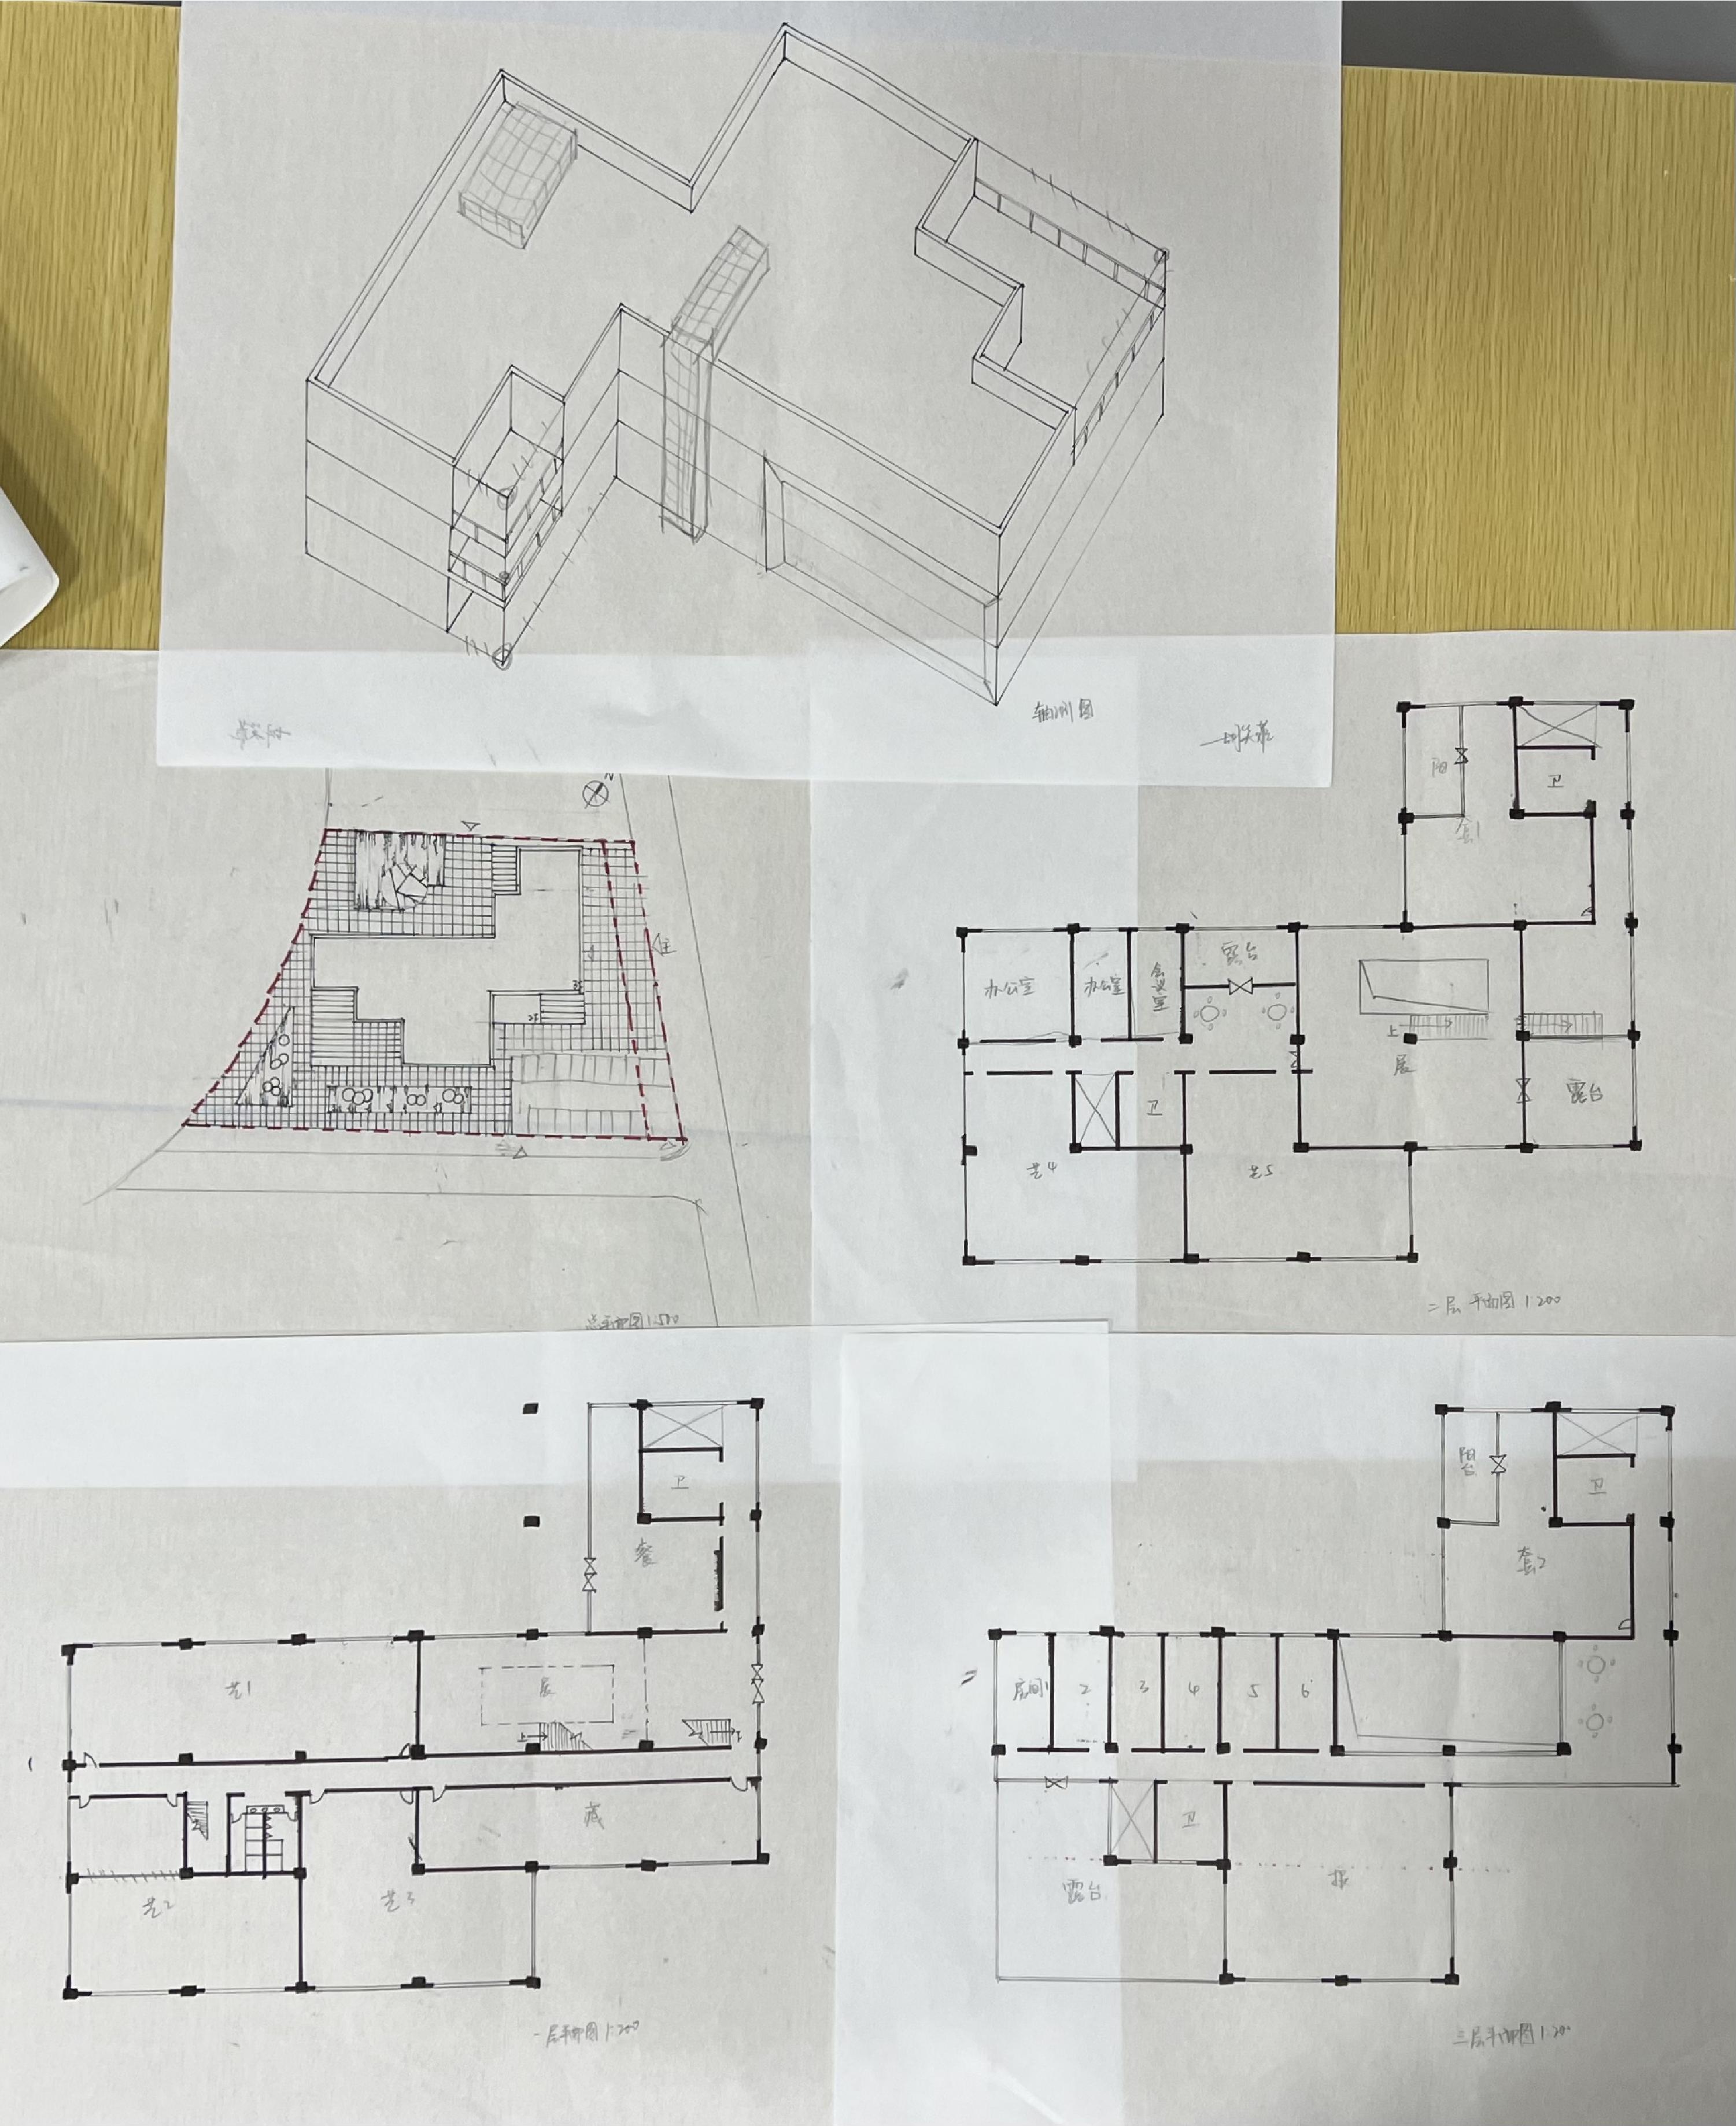 轴测图
N
主
2F
总平面图1:500
阳
卫
套1
办公室
办公室
会议室
露台
上
展
露台
卫
艺4
艺5
二层平面图1:200
卫
餐
艺1
展
上
藏
艺2
艺3
一层平面图1:200
阳台
卫
套2
房间1
2
3
4
5
6
卫
露台
报
三层平面图1:200